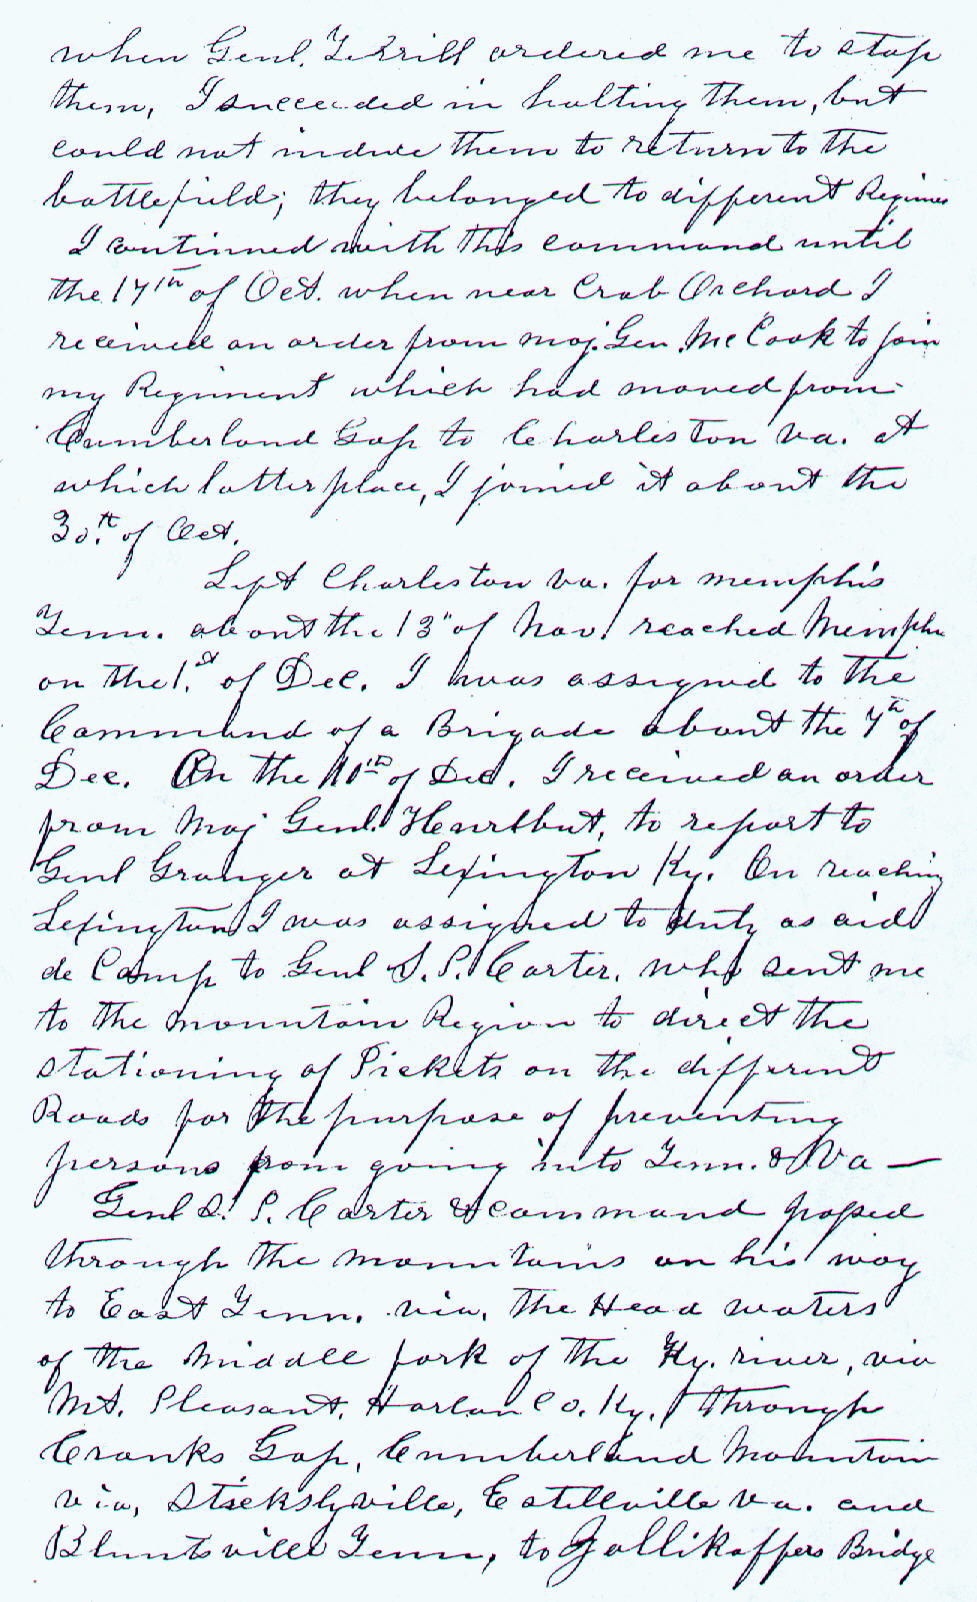 when Genl. Terrill ordered me to stop
them, I succeeded in halting them, but
could not induce them to return to the
battlefield; they belonged to different Regimes
I continued with this command until
the 17th of Oct. when near Crab Orchard I
received an order from Maj. Gen. McCook to join
my Regiment which had moved from
Cumberland Gap to Charleston Va. at
which latter place, I joined it about the
30.th of Oct.
Left Charleston Va. for Memphis
Tenn. about the 13" of Nov. reached Memphis
on the 1.st of Dec. I was assigned to the
Command of a Brigade about the 7th of
Dec. On the 10th of Dec. I received an order
from Maj Genl. Hearlbut, to report to
Genl Granger at Lexington Ky. On reaching
Lexington I was assigned to duty as aid
de Camp to Genl S. P. Carter. who sent me
to the mountain Region to direct the
stationing of Pickets on the different
Roads for the purpose of preventing
persons from going into Tenn. & Va —
Genl S. P. Carter & command passed
through the mountains on his way
to East Tenn. via. the Head waters
of the Middle fork of the Ky. river, via
Mt. Pleasant, Harlan Co. Ky. through
Cranks Gap, Cumberland Mountain
via, Stickslyville, Estillville Va. and
Bluntsville Tenn, to Gollikoffers Bridge